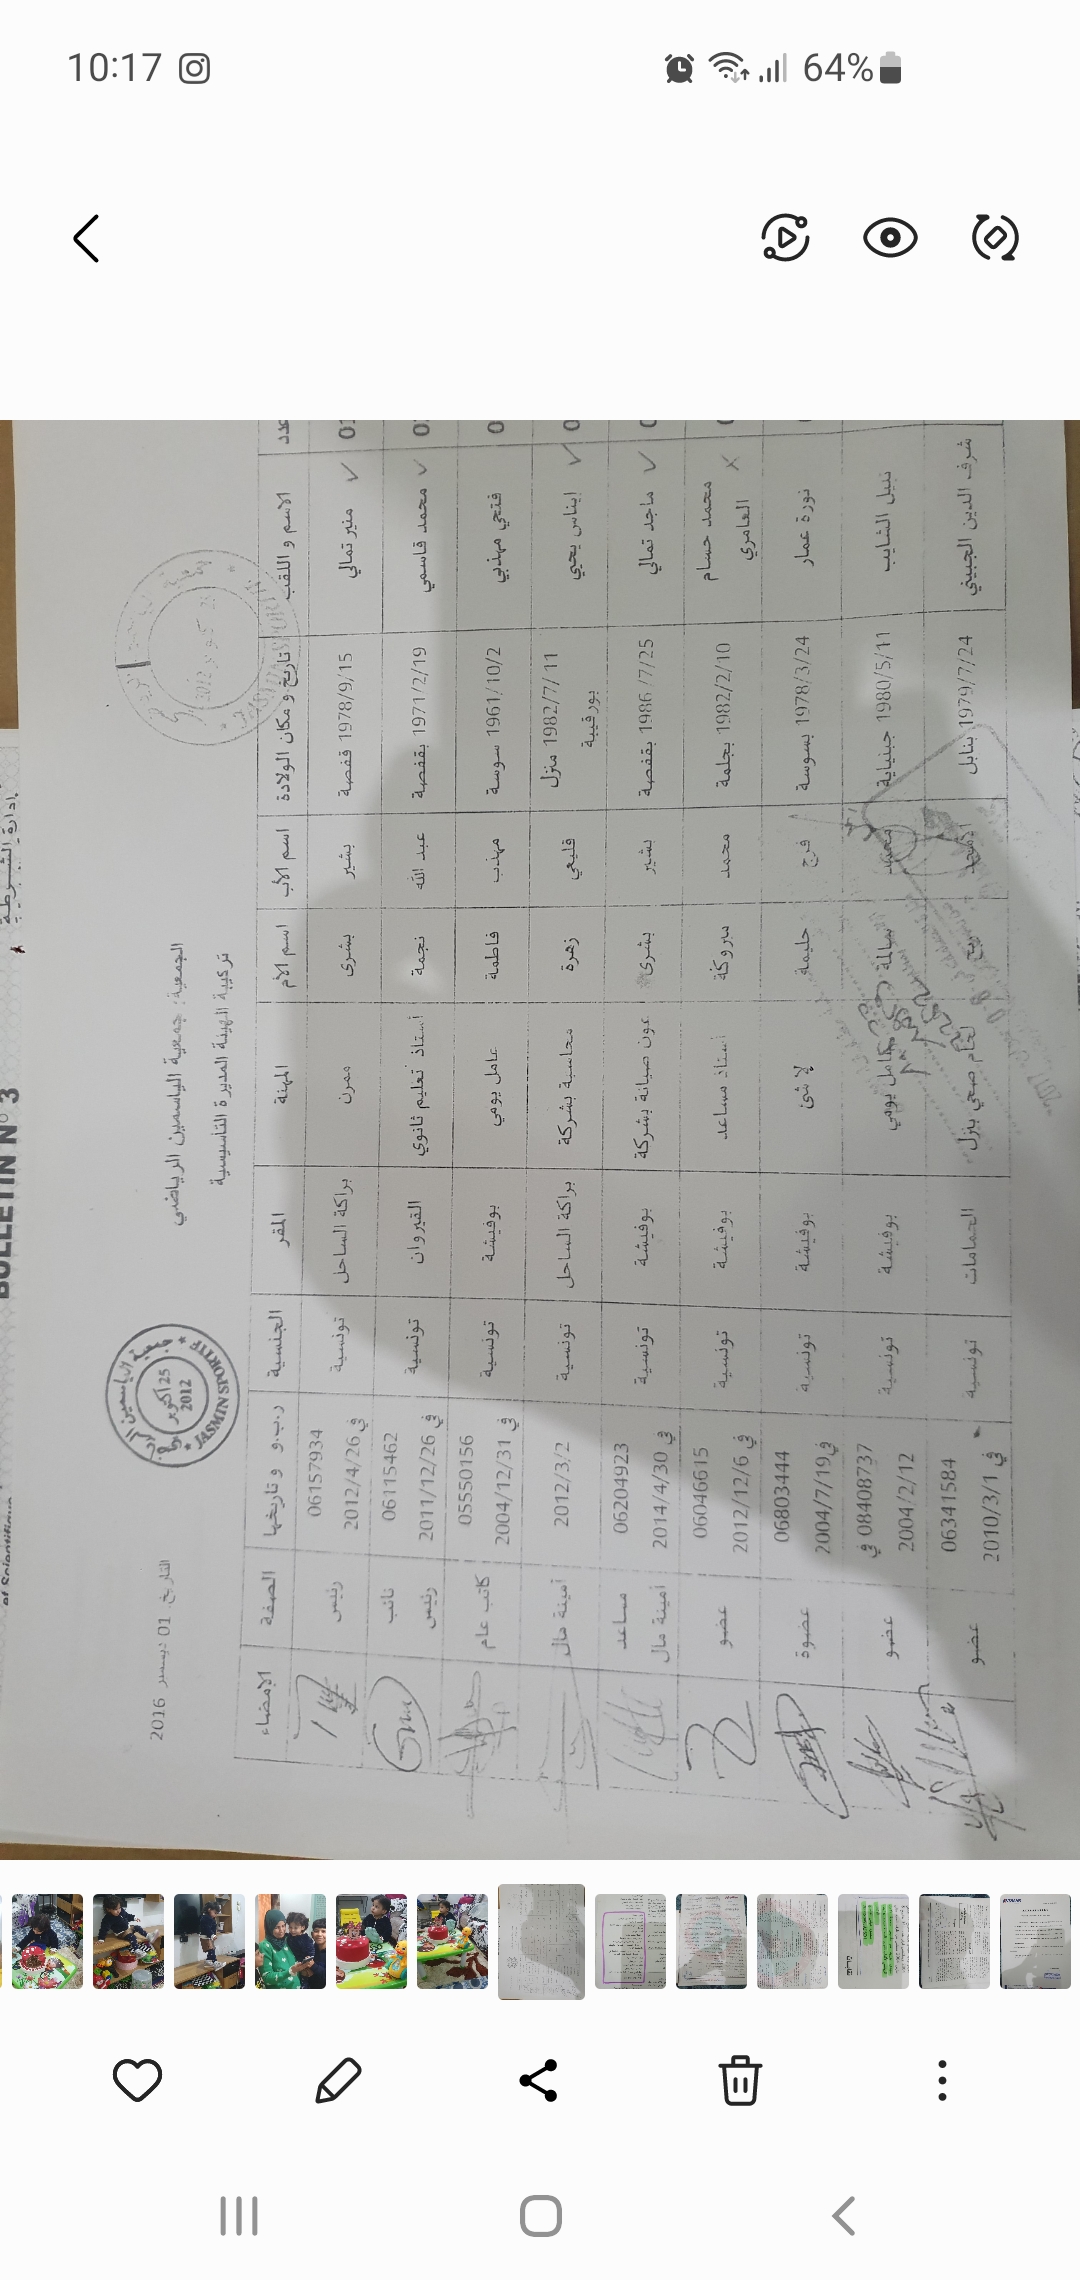 10:17
64%
BULLETIN N° 3
إدارة الشرطة
التاريخ: 01 ديسمبر 2016
الجمعية: جمعية الياسمين الرياضي
تركيبة الهيئة المديرة التأسيسية
25 أكتوبر 2012
JASMIN SPORTIF
عدد الاسم و اللقب تاريخ و مكان الولادة اسم الأب اسم الأم المهنة المقر الجنسية ر.ب.و و تاريخها الصفة الإمضاء
منير تمالي 1978/9/15 قفصة بشير بشرى ممرن براكة الساحل تونسية 06157934 في 2012/4/26 رئيس
محمد قاسمي 1971/2/19 بقفصة عبد الله نجمة أستاذ تعليم ثانوي القيروان تونسية 06115462 في 2011/12/26 نائب رئيس
فتحي مهذبي 1961/10/2 سوسة مهذب فاطمة عامل يومي بوفيشة تونسية 05550156 في 2004/12/31 كاتب عام
ايناس يحيي 1982/7/11 منزل بورقيبة قليعي زهرة محاسبة بشركة براكة الساحل تونسية 2012/3/2 أمينة مال
ماجد تمالي 1986/7/25 بقفصة بشير بشرى عون صيانة بشركة بوفيشة تونسية 06204923 في 2014/4/30 مساعد أمينة مال
محمد حسام العامري 1982/2/10 بجلمة محمد مبروكة أستاذ مساعد بوفيشة تونسية 06046615 في 2012/12/6 عضو
نورة عمار 1978/3/24 بسوسة فرج حليمة لا شئ بوفيشة تونسية 06803444 في 2004/7/19 عضوة
نبيل الشايب 1980/5/11 جبنيانة محمد سالمة عامل يومي بوفيشة تونسية 08408737 في 2004/2/12 عضو
شرف الدين الجبيني 1979/7/24 بنابل ربح لحام صحي بنزل الحمامات تونسية 06341584 في 2010/3/1 عضو